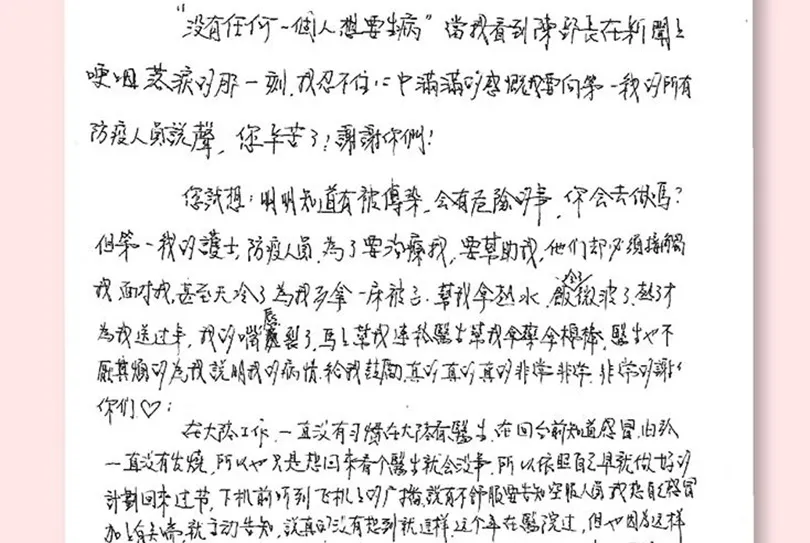 "没有任何一個人想要生病" 當我看到陳部長在新聞上
哽咽落淚的那一刻,我忍不住心中滿滿的感慨我要向第一我的所有
防疫人員說聲,您辛苦了!謝謝你們!
您試想:明明知道有被傳染,会有危險的事,你会去做嗎?
但第一我的護士,防疫人員,為了要治療我,要幫助我,他们却必須接觸
我,面对我,甚至天冷了為我多拿一床被子,幫我拿热水,飯冷了微波了,热了才
為我送过来,我的嘴唇裂了,马上幫我連絡醫生幫我拿藥拿棉棒,醫生也不
厭其煩的為我說明我的病情,給我鼓励,真的真的真的非常非常,非常的謝谢
你们♡:
在大陸工作,一直没有习慣在大陸看醫生,在回台前知道感冒,由於
一直没有发燒,所以也只是想回來看个醫生就会没事,所以依照自己早就做好的
計劃回來过节,下机前听到飞机上的广播,說有不舒服要告知空服人員,我想自己感冒
就主动告知,說真的没有想到就这样,这个年在醫院过,但也因為这样